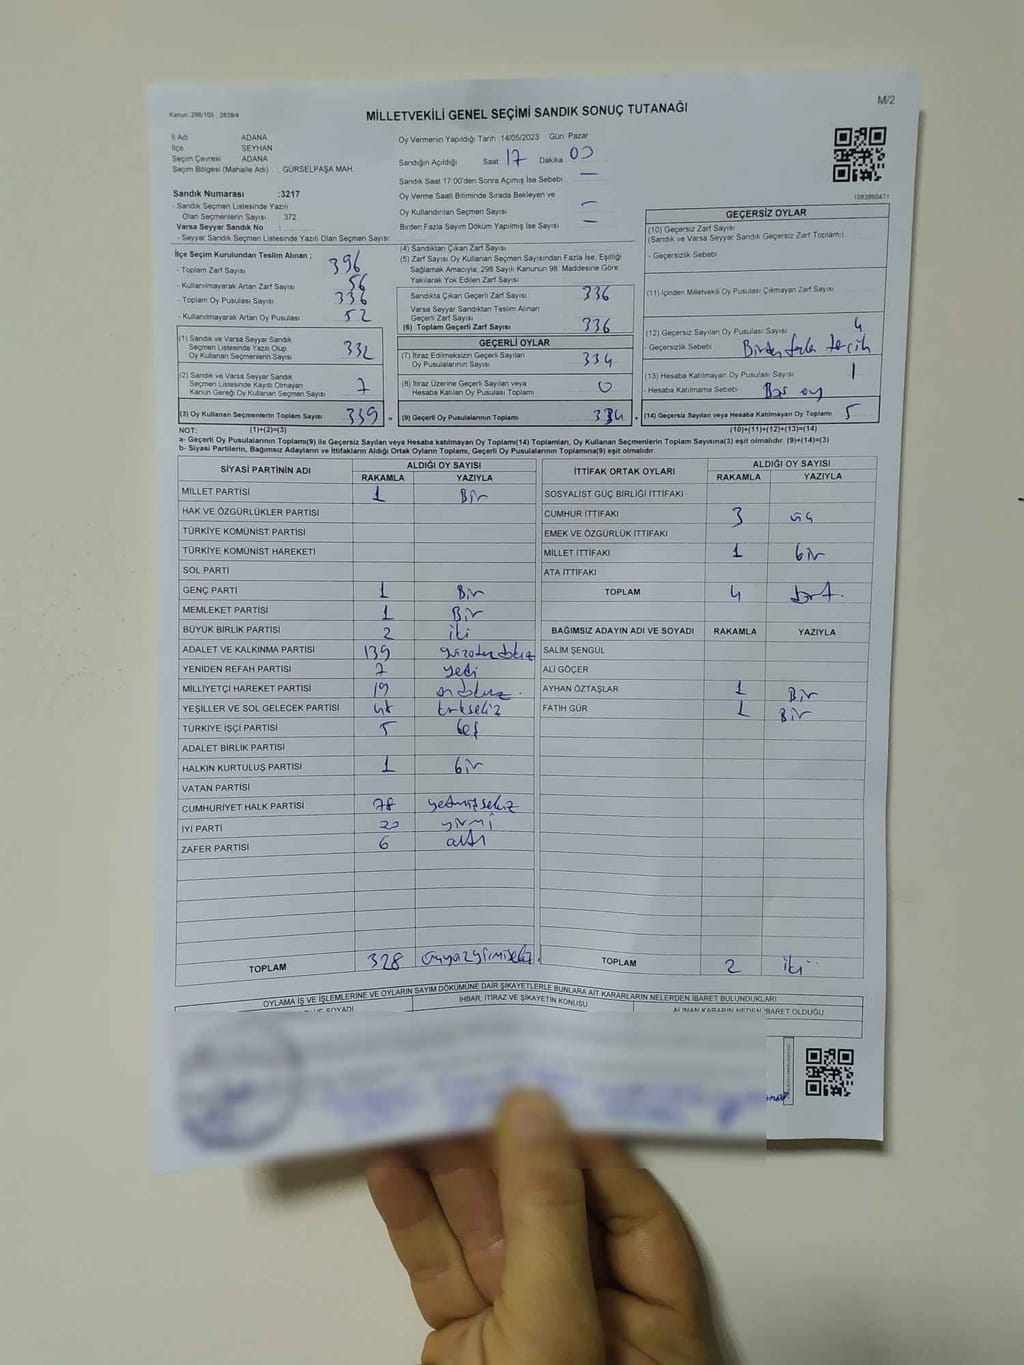 Kanun: 298/105 , 2839/4
MİLLETVEKİLİ GENEL SEÇİMİ SANDIK SONUÇ TUTANAĞI
M/2
İli Adı ADANA
İlçe SEYHAN
Seçim Çevresi ADANA
Seçim Bölgesi (Mahalle Adı) : GÜRSELPAŞA MAH.
Sandık Numarası :3217
- Sandık Seçmen Listesinde Yazılı
Olan Seçmenlerin Sayısı : 372
Varsa Seyyar Sandık No :
- Seyyar Sandık Seçmen Listesinde Yazılı Olan Seçmen Sayısı
Oy Vermenin Yapıldığı Tarih : 14/05/2023 Gün: Pazar
Sandığın Açıldığı Saat 17 Dakika 00
Sandık Saat 17:00'den Sonra Açılmış İse Sebebi —
Oy Verme Saati Bitiminde Sırada Bekleyen ve
Oy Kullandırılan Seçmen Sayısı —
Birden Fazla Sayım Döküm Yapılmış İse Sayısı —
1083860471
İlçe Seçim Kurulundan Teslim Alınan :
- Toplam Zarf Sayısı 396
- Kullanılmayarak Artan Zarf Sayısı 56
- Toplam Oy Pusulası Sayısı
- Kullanılmayarak Artan Oy Pusulası 52
(1) Sandık ve Varsa Seyyar Sandık
Seçmen Listesinde Yazılı Olup
Oy Kullanan Seçmenlerin Sayısı 332
(2) Sandık ve Varsa Seyyar Sandık
Seçmen Listesinde Kayıtlı Olmayan
Kanun Gereği Oy Kullanan Seçmen Sayısı 7
(3) Oy Kullanan Seçmenlerin Toplam Sayısı 339
(4) Sandıktan Çıkan Zarf Sayısı
(5) Zarf Sayısı Oy Kullanan Seçmen Sayısından Fazla İse, Eşitliği
Sağlamak Amacıyla; 298 Sayılı Kanunun 98. Maddesine Göre
Yakılarak Yok Edilen Zarf Sayısı
Sandıkta Çıkan Geçerli Zarf Sayısı 336
Varsa Seyyar Sandıktan Teslim Alınan
Geçerli Zarf Sayısı
(6) Toplam Geçerli Zarf Sayısı 336
GEÇERLİ OYLAR
(7) İtiraz Edilmeksizin Geçerli Sayılan
Oy Pusulalarının Sayısı 334
(8) İtiraz Üzerine Geçerli Sayılan veya
Hesaba Katılan Oy Pusulası Toplamı 0
= (9) Geçerli Oy Pusulalarının Toplamı 334
GEÇERSİZ OYLAR
(10) Geçersiz Zarf Sayısı
(Sandık ve Varsa Seyyar Sandık Geçersiz Zarf Toplamı)
- Geçersizlik Sebebi
(11) İçinden Milletvekili Oy Pusulası Çıkmayan Zarf Sayısı
(12) Geçersiz Sayılan Oy Pusulası Sayısı 4
- Geçersizlik Sebebi Birden fazla tercih
(13) Hesaba Katılmayan Oy Pusulası Sayısı 1
- Hesaba Katılmama Sebebi Boş oy
+ (14) Geçersiz Sayılan veya Hesaba Katılmayan Oy Toplamı 5
NOT: (1)+(2)=(3) (10)+(11)+(12)+(13)=(14)
a- Geçerli Oy Pusulalarının Toplamı(9) ile Geçersiz Sayılan veya Hesaba katılmayan Oy Toplamı(14) Toplamları, Oy Kullanan Seçmenlerin Toplam Sayısına(3) eşit olmalıdır. (9)+(14)=(3)
b- Siyasi Partilerin, Bağımsız Adayların ve İttifakların Aldığı Ortak Oyların Toplamı, Geçerli Oy Pusulalarının Toplamına(9) eşit olmalıdır.
SİYASİ PARTİNİN ADI ALDIĞI OY SAYISI
RAKAMLA YAZIYLA
MİLLET PARTİSİ 1 Bir
HAK VE ÖZGÜRLÜKLER PARTİSİ
TÜRKİYE KOMÜNİST PARTİSİ
TÜRKİYE KOMÜNİST HAREKETİ
SOL PARTİ
GENÇ PARTİ 1 Bir
MEMLEKET PARTİSİ 1 Bir
BÜYÜK BİRLİK PARTİSİ 2 iki
ADALET VE KALKINMA PARTİSİ 139 yüzotuzdokuz
YENİDEN REFAH PARTİSİ 7 yedi
MİLLİYETÇİ HAREKET PARTİSİ 19 ondokuz
YEŞİLLER VE SOL GELECEK PARTİSİ 48 kırksekiz
TÜRKİYE İŞÇİ PARTİSİ 5 beş
ADALET BİRLİK PARTİSİ
HALKIN KURTULUŞ PARTİSİ 1 bir
VATAN PARTİSİ
CUMHURİYET HALK PARTİSİ 78 yetmişsekiz
İYİ PARTİ 20 yirmi
ZAFER PARTİSİ 6 altı
TOPLAM 328 üçyüzyirmisekiz
İTTİFAK ORTAK OYLARI ALDIĞI OY SAYISI
RAKAMLA YAZIYLA
SOSYALİST GÜÇ BİRLİĞİ İTTİFAKI
CUMHUR İTTİFAKI 3 üç
EMEK VE ÖZGÜRLÜK İTTİFAKI
MİLLET İTTİFAKI 1 bir
ATA İTTİFAKI
TOPLAM 4 dört
BAĞIMSIZ ADAYIN ADI VE SOYADI RAKAMLA YAZIYLA
SALİM ŞENGÜL
ALİ GÖÇER
AYHAN ÖZTAŞLAR 1 Bir
FATİH GÜR 1 Bir
TOPLAM 2 iki
OYLAMA İŞ VE İŞLEMLERİNE VE OYLARIN SAYIM DÖKÜMÜNE DAİR ŞİKAYETLERLE BUNLARA AİT KARARLARIN NELERDEN İBARET BULUNDUKLARI
SOYADI İHBAR, İTİRAZ VE ŞİKAYETİN KONUSU ALINAN KARARIN NEDEN İBARET OLDUĞU